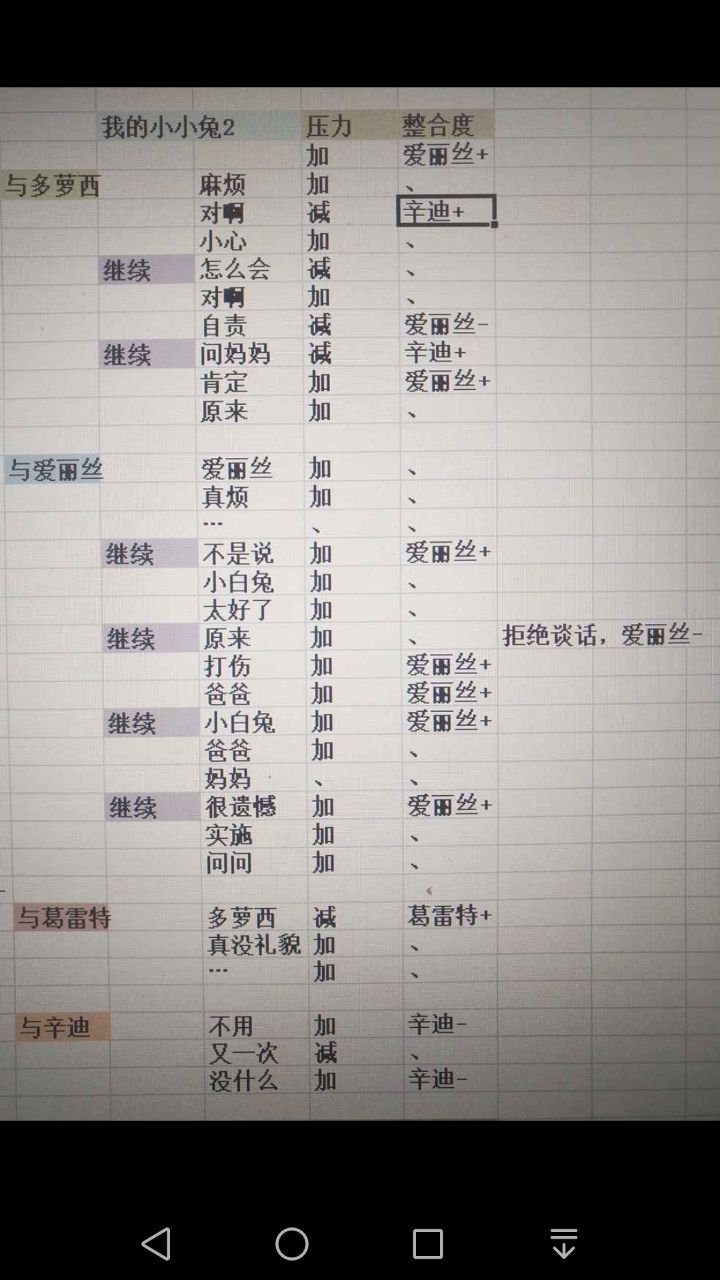 我的小小兔2 压力 整合度
加 爱丽丝+
与多萝西 麻烦 加 、
对啊 减 辛迪+
小心 加 、
继续 怎么会 减 、
对啊 加 、
自责 减 爱丽丝-
继续 问妈妈 减 辛迪+
肯定 加 爱丽丝+
原来 加 、
与爱丽丝 爱丽丝 加 、
真烦 加 、
… 、 、
继续 不是说 加 爱丽丝+
小白兔 加 、
太好了 加 、
继续 原来 加 、 拒绝谈话，爱丽丝-
打伤 加 爱丽丝+
爸爸 加 爱丽丝+
继续 小白兔 加 爱丽丝+
爸爸 加 、
妈妈 、 、
继续 很遗憾 加 爱丽丝+
实施 加 、
问问 加 、
与葛雷特 多萝西 减 葛雷特+
真没礼貌 加 、
… 加 、
与辛迪 不用 加 辛迪-
又一次 减 、
没什么 加 辛迪-